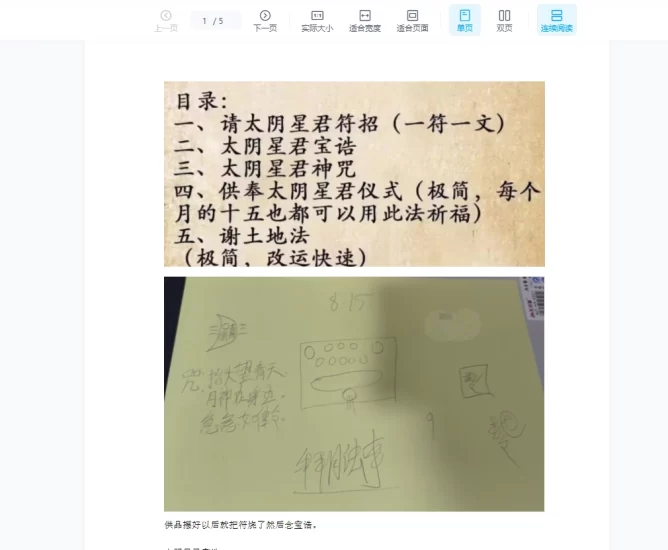 上一页
1 / 5
下一页
实际大小
适合宽度
适合页面
单页
双页
连续阅读
目录：
一、请太阴星君符招（一符一文）
二、太阴星君宝诰
三、太阴星君神咒
四、供奉太阴星君仪式（极简，每个
月的十五也都可以用此法祈福）
五、谢土地法
（极简，改运快速）
8.15
咒，抬头望青天
月神在身边。
急急如律令。
9
供品摆好以后就把符烧了然后念宝诰。